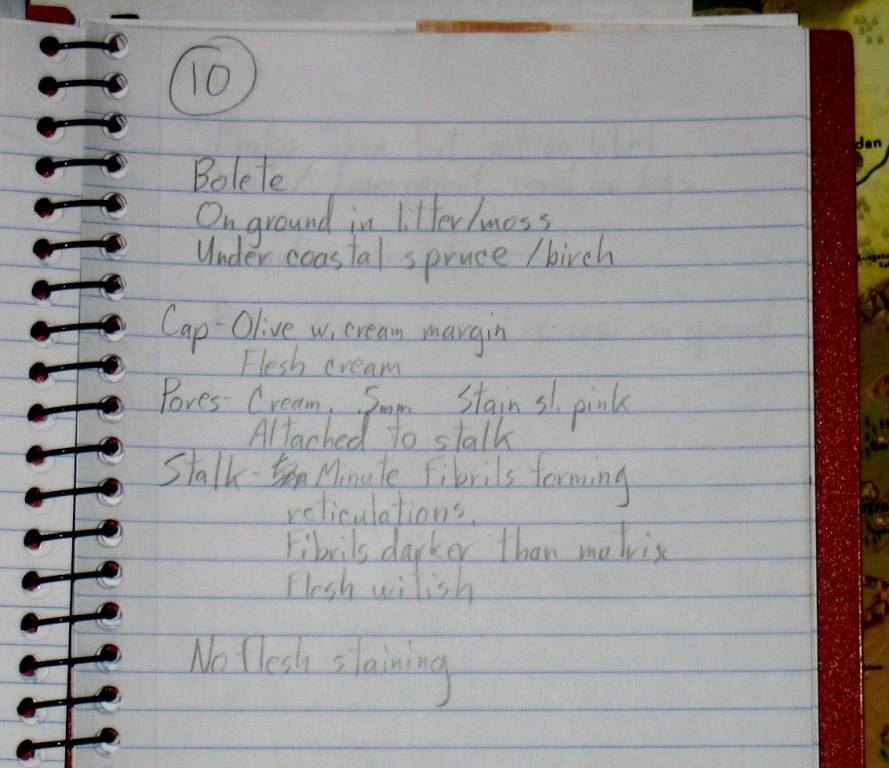 10
Bolete
On ground in litter/moss
Under coastal spruce /birch
Cap - Olive w. cream margin
Flesh cream
Pores - Cream. .5mm Stain sl. pink
Attached to stalk
Stalk - Minute Fibrils forming
reticulations.
Fibrils darker than matrix
Flesh witish
No flesh staining
dan